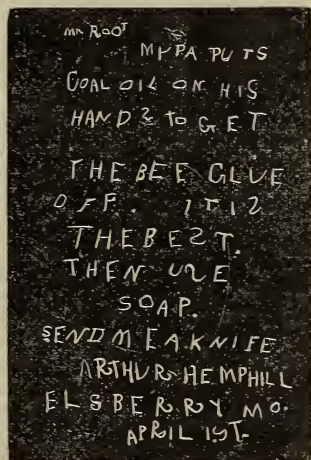 Mr ROOT
MY PA PUTS
COAL OIL ON HIS
HANDS TO GET
THE BEE GLUE
OFF. IT IS
THE BEST.
THEN USE
SOAP.
SEND ME A KNIFE
ARTHUR HEMPHILL
ELSBERRY MO.
APRIL 1ST.